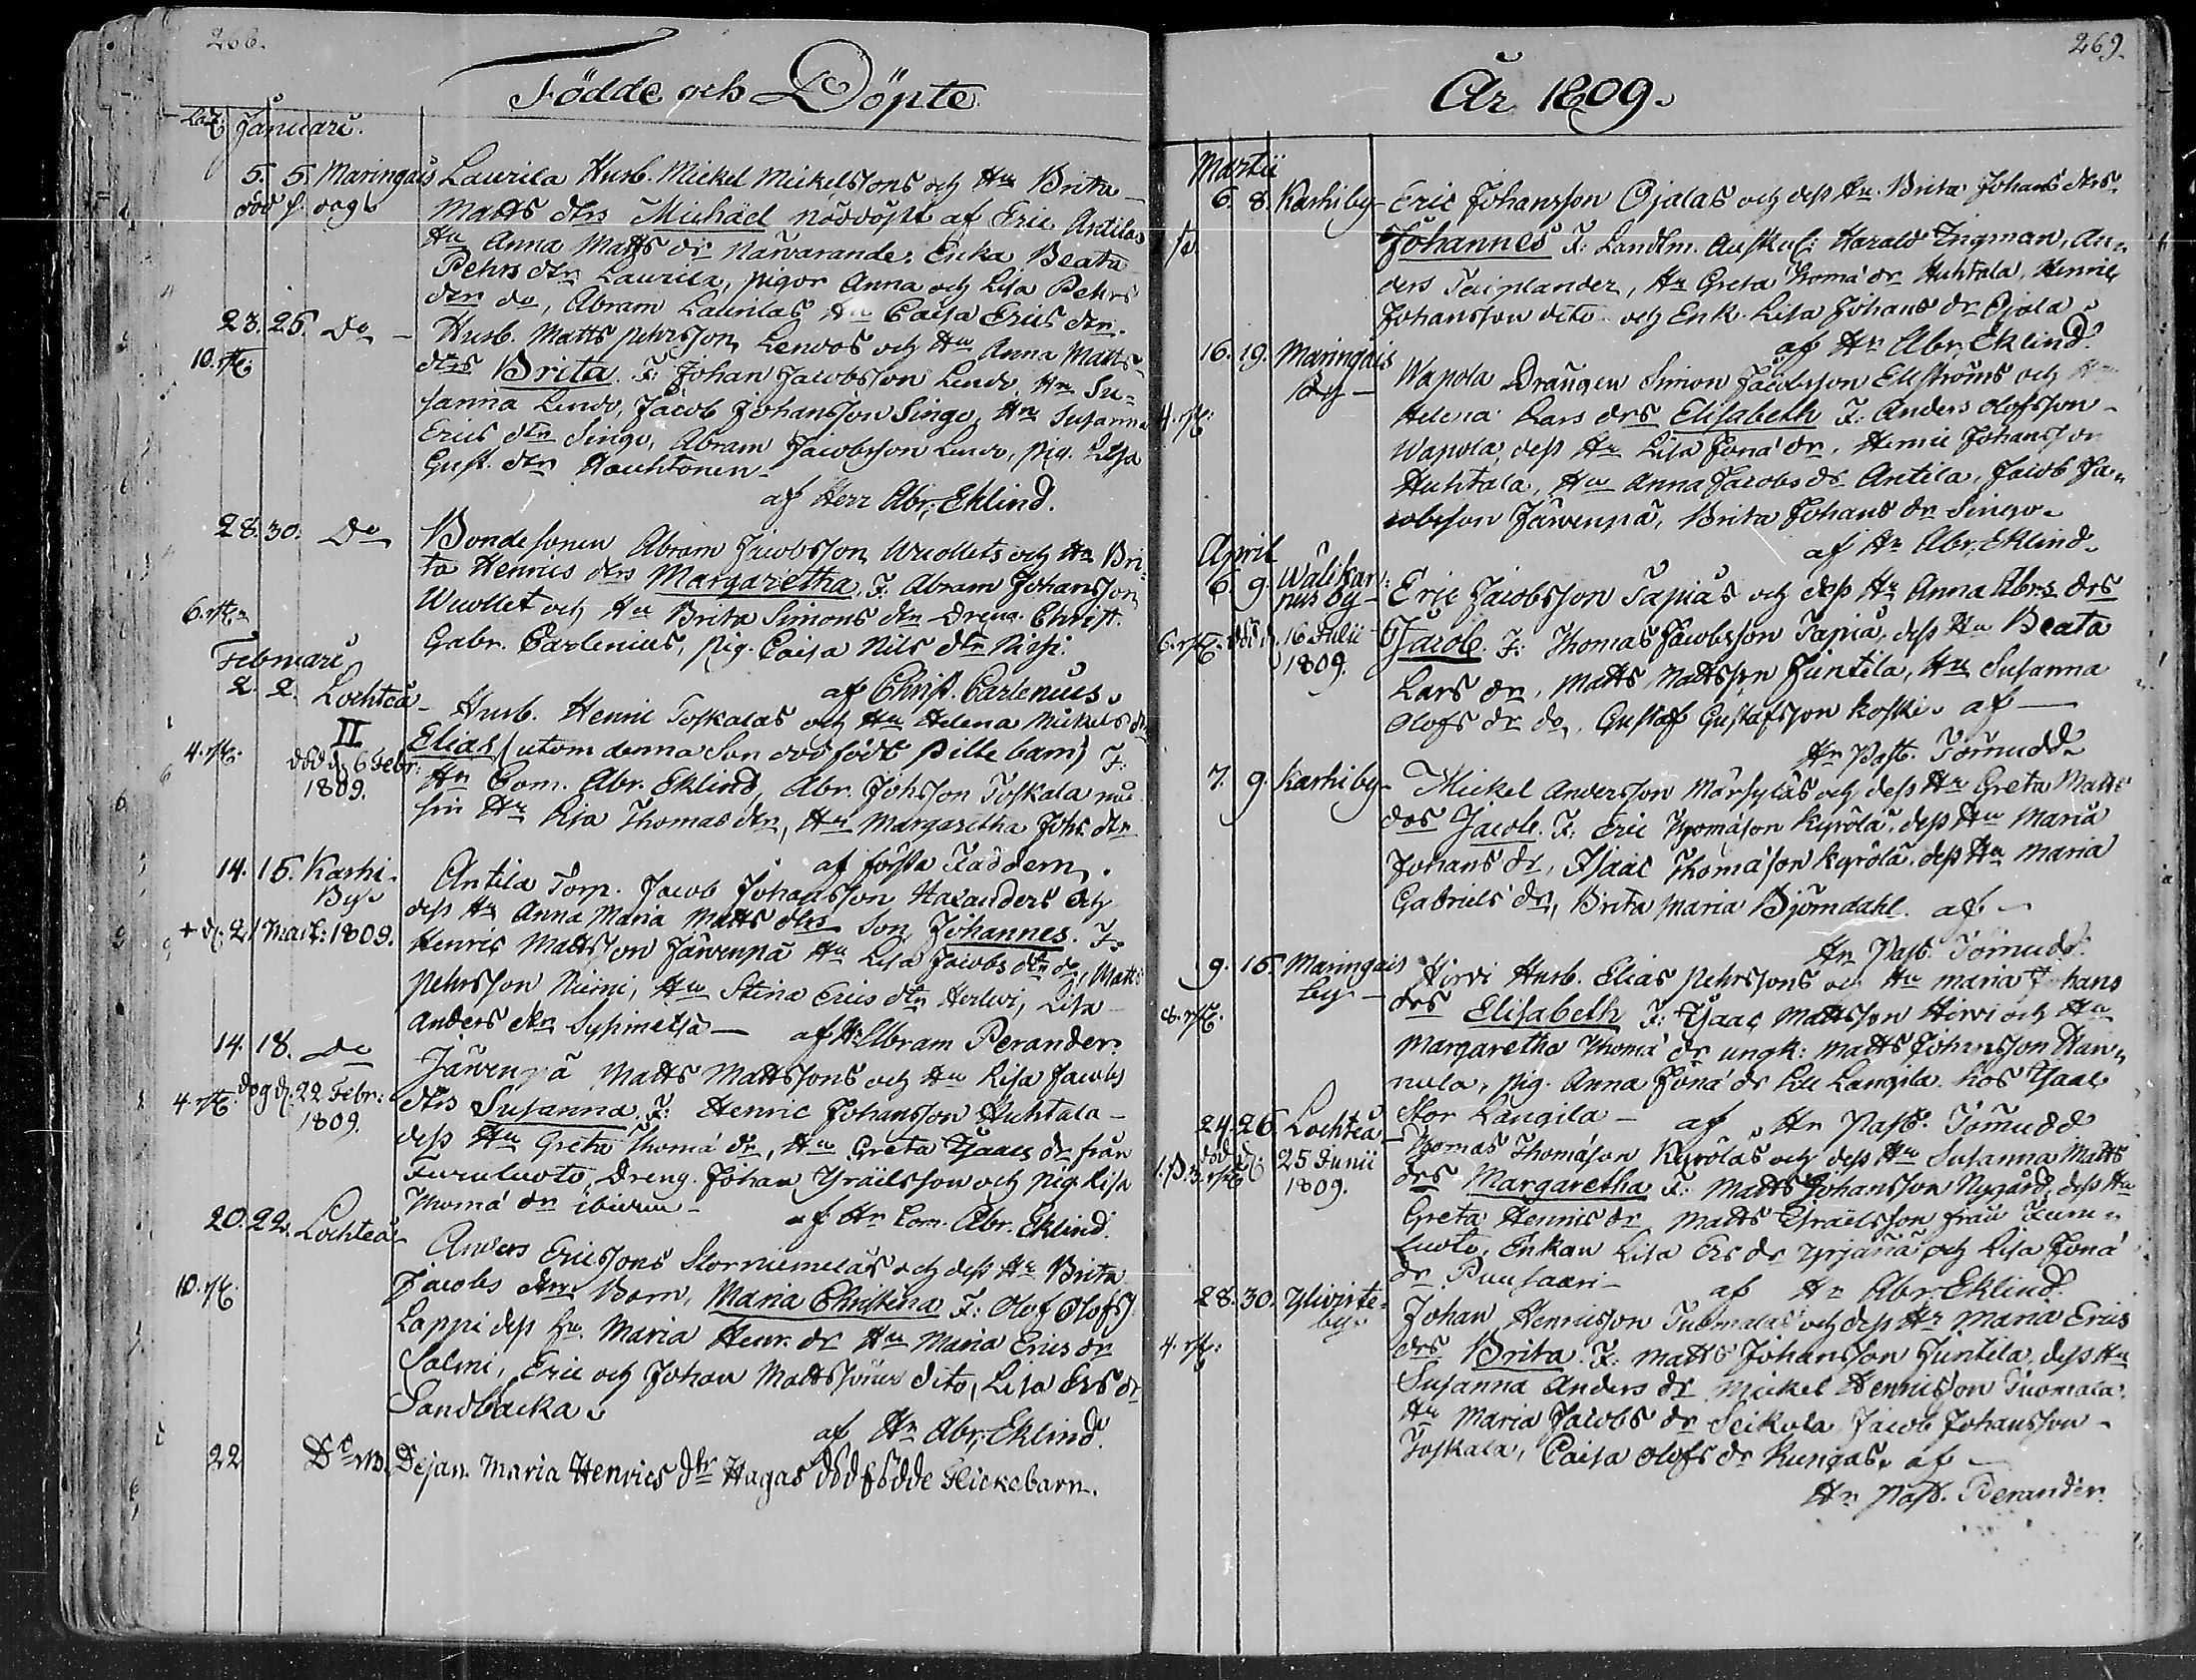 266.
Födde och Döpte
Januari.
5. 5. Maringais Laurila Husb. Mickel Mickelssons och Hu Brita
död s. dag Matts dtrs Michäel nöddöpt af Eric Antilas
Hu Anna Matts dr Närvarande, Enka Beata
Pehrs dtr Laurila, pigor Anna och Lisa Pehrs
dtr do, Abram Laurilas Hu Caisa Erics dtr.
23. 25. Do Husb. Matts Pehrsson Lenvos och Hu Anna Matts
10. dtrs Brita. F: Johan Jacobsson Lenvo, Hu Su=
sanna Lenvo, Jacob Johansson Singo, Hu Susanna
Erics dtr Singo, Abram Jacobsson Lenvo, pig. Lisa
Gust. dtr Hauhtonen
af Herr Abr. Eklind.
28. 30. Do Bondesonen Abram Jacobsson Wuollets och Hu Bri
ta Henrics dtrs Margaretha. F. Abram Johansson
6. Wuollet och Hu Brita Simons dtr Dreng. Christ.
Gabr. Carlenius, pig. Caisa Nils dtr
af Christ. Carlenius.
Februari
2. 2. Lochteå Husb. Henric Toskalas och Hu Helena Mickels dtr
II
4. Elias (utom denna Son död född pilte barn) F:
död d. 6 Febr: 1809. Hr Com. Abr. Eklind, Abr. Johsson Toskala
Hu Lisa Thomas dtr, Hu Margaretha Johs dtr
af första Faddern.
14. 15. Karhi By Antila Torp. Jacob Johansson Haxanders och
dess Hu Anna Maria Matts dtrs Son, Johannes. F.
+ d. 21 Mart: 1809. Henric Mattsson Järvenpä Hu Lisa Jacobs dtr do, Matts
Pehrsson Niemi, Hu Stina Erics dtr Herlevi, Lisa
Anders dtr Sypimetsä af Hr Abram Perander.
14. 18. Do Järvenpä Matts Mattssons och Hu Lisa Jacobs
4. dog d. 22 Febr: 1809. dtrs Susanna. F: Henric Johansson Huhtala
dess Hu Greta Thomä dr, Hu Greta Ysaacs dr från
Dreng. Johan Ysräilsson och pig. Lisa
Thomä dr ibidem af Hr Com. Abr. Eklind.
20. 22. Lochteå Anders Ericssons Storniemeläs och dess Hu Brita
10. Jacobs dtrs Barn, Maria Christina F: Olof Olofs
Lappi dess Hu. Maria Henr. dr Hu Maria Erics dr
Salmi, Eric och Johan Mattssöner dito, Lisa Ers dr
Sandbacka.
af Hr Abr. Eklind.
22 Do NB. Dejan. Maria Henrics Dtr Hagas dödfödde Flickebarn.
269.
År 1809.
Martii
6. 8. Karhi by Eric Johansson Ojalas och dess Hu. Brita Johans dtrs
Johannes F. Landtm. Auskul: Harald Ingman, An
ders Teirlander, Hu Greta Thomä dr Huhtala, Henric
Johansson dito och Enk. Lisa Johans dr Ojala
af Hr Abr. Eklind.
16. 19. Maringais by Wapola Drängen Simon Jacobsson Ekströms och Hu
4. Helena Lars drs Elisabeth F. Anders Olofsson
Wapola, dess Hu Lisa Jonä dr. Henric Johansson
Huhtala, Hu Anna Jacobs dr Antila, Jacob Ja
cobsson Järvenpä, Brita Johans dr Singo
af Hr Abr. Eklind.
April
6. 9. Wälikan: nus by Eric Jacobsson Tapias och dess Hu Anna Abr:s drs
6. död d. 16 Julii 1809. Jacob. F: Thomas Jacobsson Tapia, dess Hu Beata
Lars dr, Matts Mattsson Juntila, Hu Susanna
Olofs dr do, Gustaf Gustafsson Koski. af
Hr Past. Törnudd
7. 9. Karhi by Mickel Andersson Märsyläs och dess Hu Greta Matts
drs Jacob. F: Eric Thomäson Kyrölä, dess Hu Maria
Johans dr, Isaac Thomäson Kyrölä, dess Hu Maria
Gabriels dr, Brita Maria Björndahl. af
Hr Past. Törnudd.
9. 16. Maringais by Hirvi Husb. Elias Pehrssons och Hu Maria Johans
8. drs Elisabeth F: Ysaac Mattsson Hirvi och Hu
Margaretha Thomä dr ungk: Matts Johansson Kan
nula, pig. Anna Jonä dr Lill Längila hos Ysaac
Stor Langila af Hr Past. Törnudd
24. 26. Lochteå Thomas Thomäson Kyröläs och dess Hu Susanna Matts
död d. 25 Junii 1809. drs Margaretha F: Matts Johansson Nygård, dess Hu
Greta Henrics dr Matts Ysräilsson från
Enkan Lisa Ers dr Yrjänä och Lisa Jonä
dr Puusaari af Hr Abr. Eklind.
28. 30. Yliviste by Johan Henricsson Tuomalas och dess Hu Maria Erics
4. drs Brita. F: Matts Johansson Juntila, dess Hu
Susanna Anders dr Mickel Henricsson Tuomala
Hu Maria Jacobs dr Seikola Jacob Johansson
Toskala, Caisa Olofs dr Kungas. af
Hr Past. Perander.